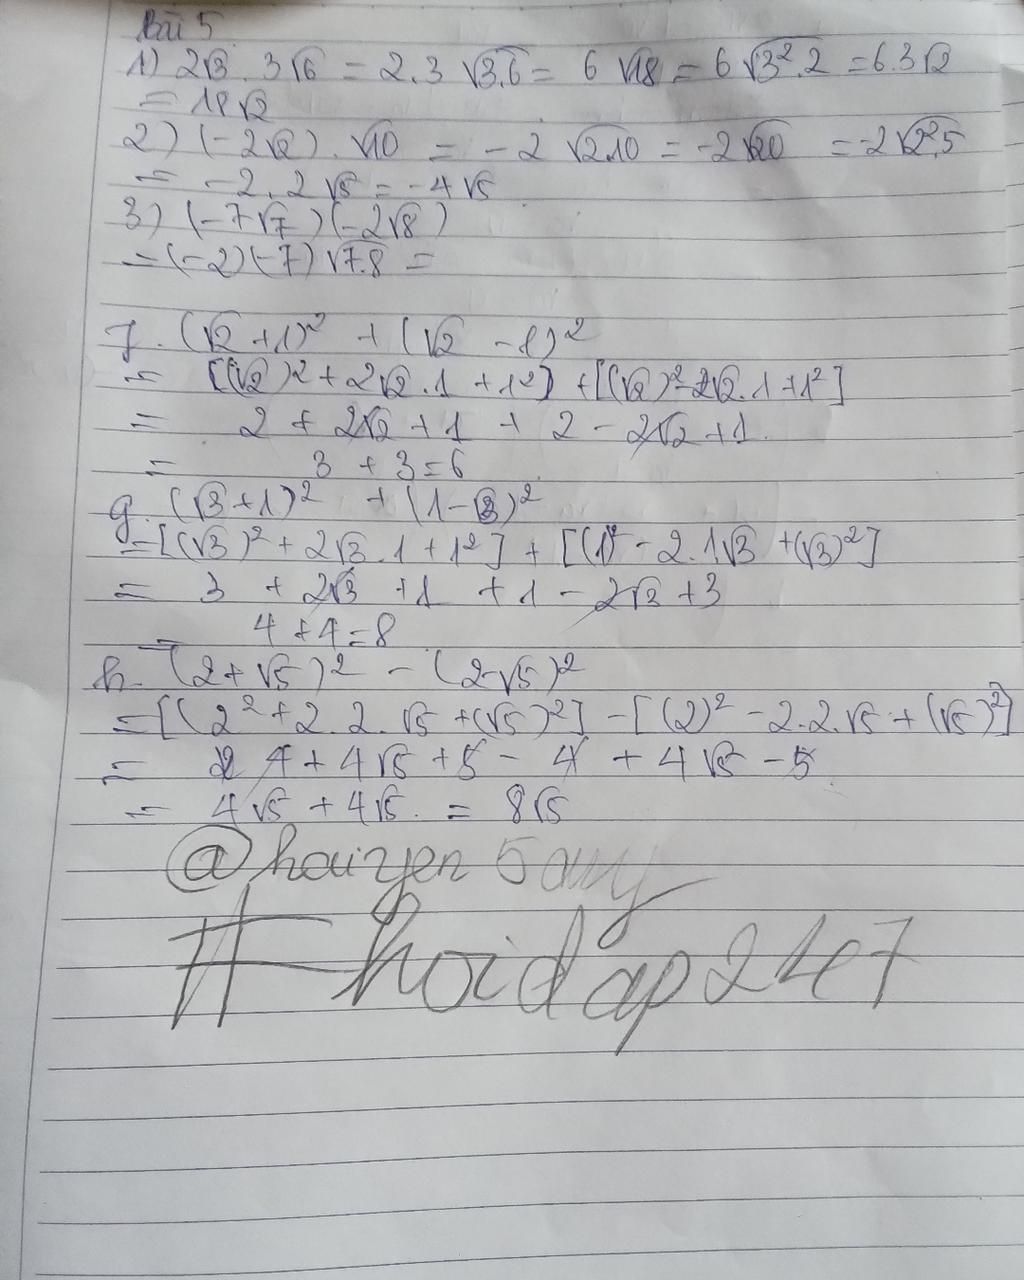 Bài 5
1) 2√3 . 3√6 = 2.3 √3.6 = 6 √18 = 6 √3².2 = 6.3√2
= 18√2
2) (-2√2) . √10 = -2 √2.10 = -2√20 = -2√2².5
= -2.2√5 = -4√5
3) (-7√7)(-2√8)
= (-2)(-7)√7.8 =
f. (√2 + 1)² + (√2 - 1)²
= [(√2)² + 2√2.1 + 1²] + [(√2)² - 2√2.1 + 1²]
= 2 + 2√2 + 1 + 2 - 2√2 + 1
= 3 + 3 = 6
g. (√3 + 1)² + (1 - √3)²
= [(√3)² + 2√3.1 + 1²] + [(1)² - 2.1√3 + (√3)²]
= 3 + 2√3 + 1 + 1 - 2√3 + 3
= 4 + 4 = 8
h. (2 + √5)² - (2 - √5)²
= [(2² + 2.2.√5 + (√5)²] - [(2)² - 2.2.√5 + (√5)²]
= 4 + 4√5 + 5 - 4 + 4√5 - 5
= 4√5 + 4√5 = 8√5
@haiyen5
#hoidap247